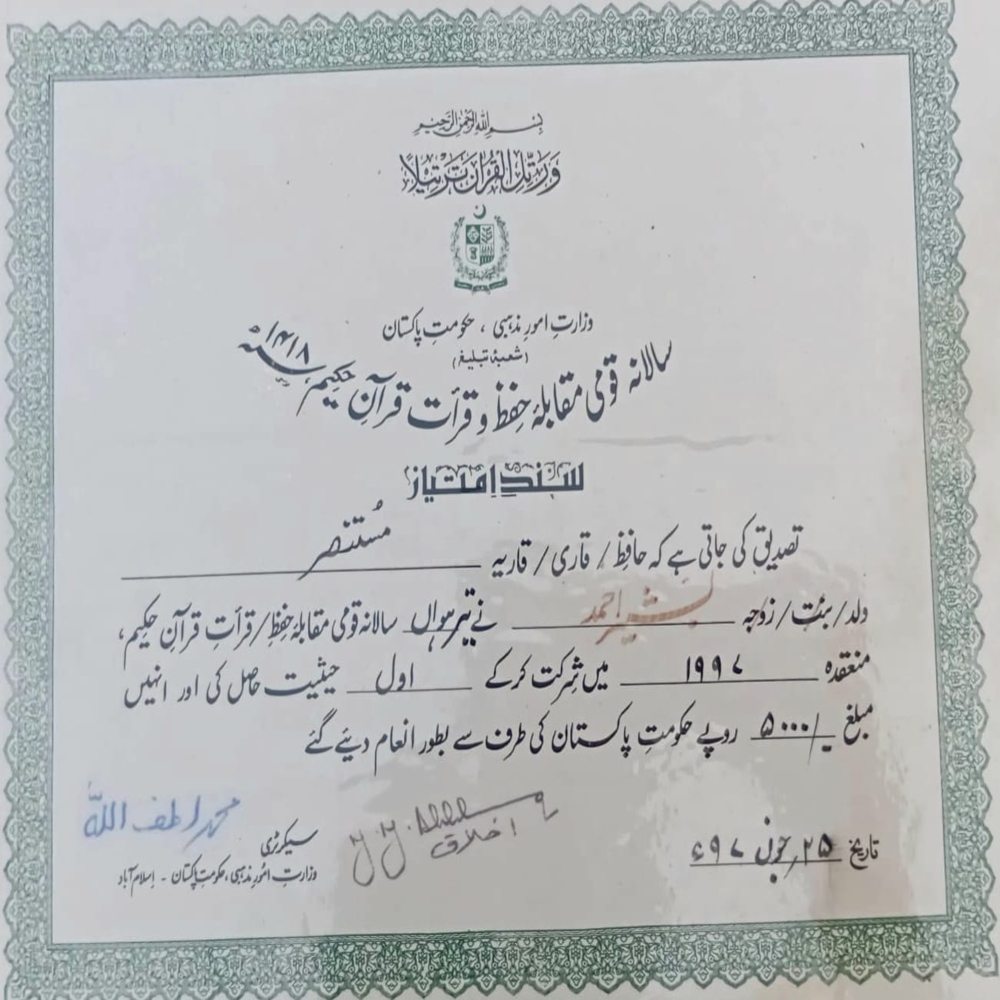 بسم الله الرحمن الرحيم
وَرَتِّلِ الْقُرْآنَ تَرْتِيلًا
وزارتِ امورِ مذہبی ، حکومتِ پاکستان
(شعبۂ تبلیغ)
سالانہ قومی مقابلۂ حفظ و قرأت قرآنِ حکیم ۱۴۱۸ھ
سندِ امتیاز
تصدیق کی جاتی ہے کہ حافظ / قاری / قاریہ مُستنصر
ولد / بنت / زوجہ بشیر احمد نے تیرہواں سالانہ قومی مقابلۂ حفظ / قرأت قرآنِ حکیم ،
منعقدہ ۱۹۹۷ میں شرکت کرکے اول حیثیت حاصل کی اور انہیں
مبلغ ۵۰۰۰/- روپے حکومتِ پاکستان کی طرف سے بطور انعام دیئے گئے
تاریخ ۲۵ جون ۹۷ء
اخلاق
محمد لطف اللہ
سیکرٹری
وزارتِ امورِ مذہبی ، حکومتِ پاکستان - اسلام آباد